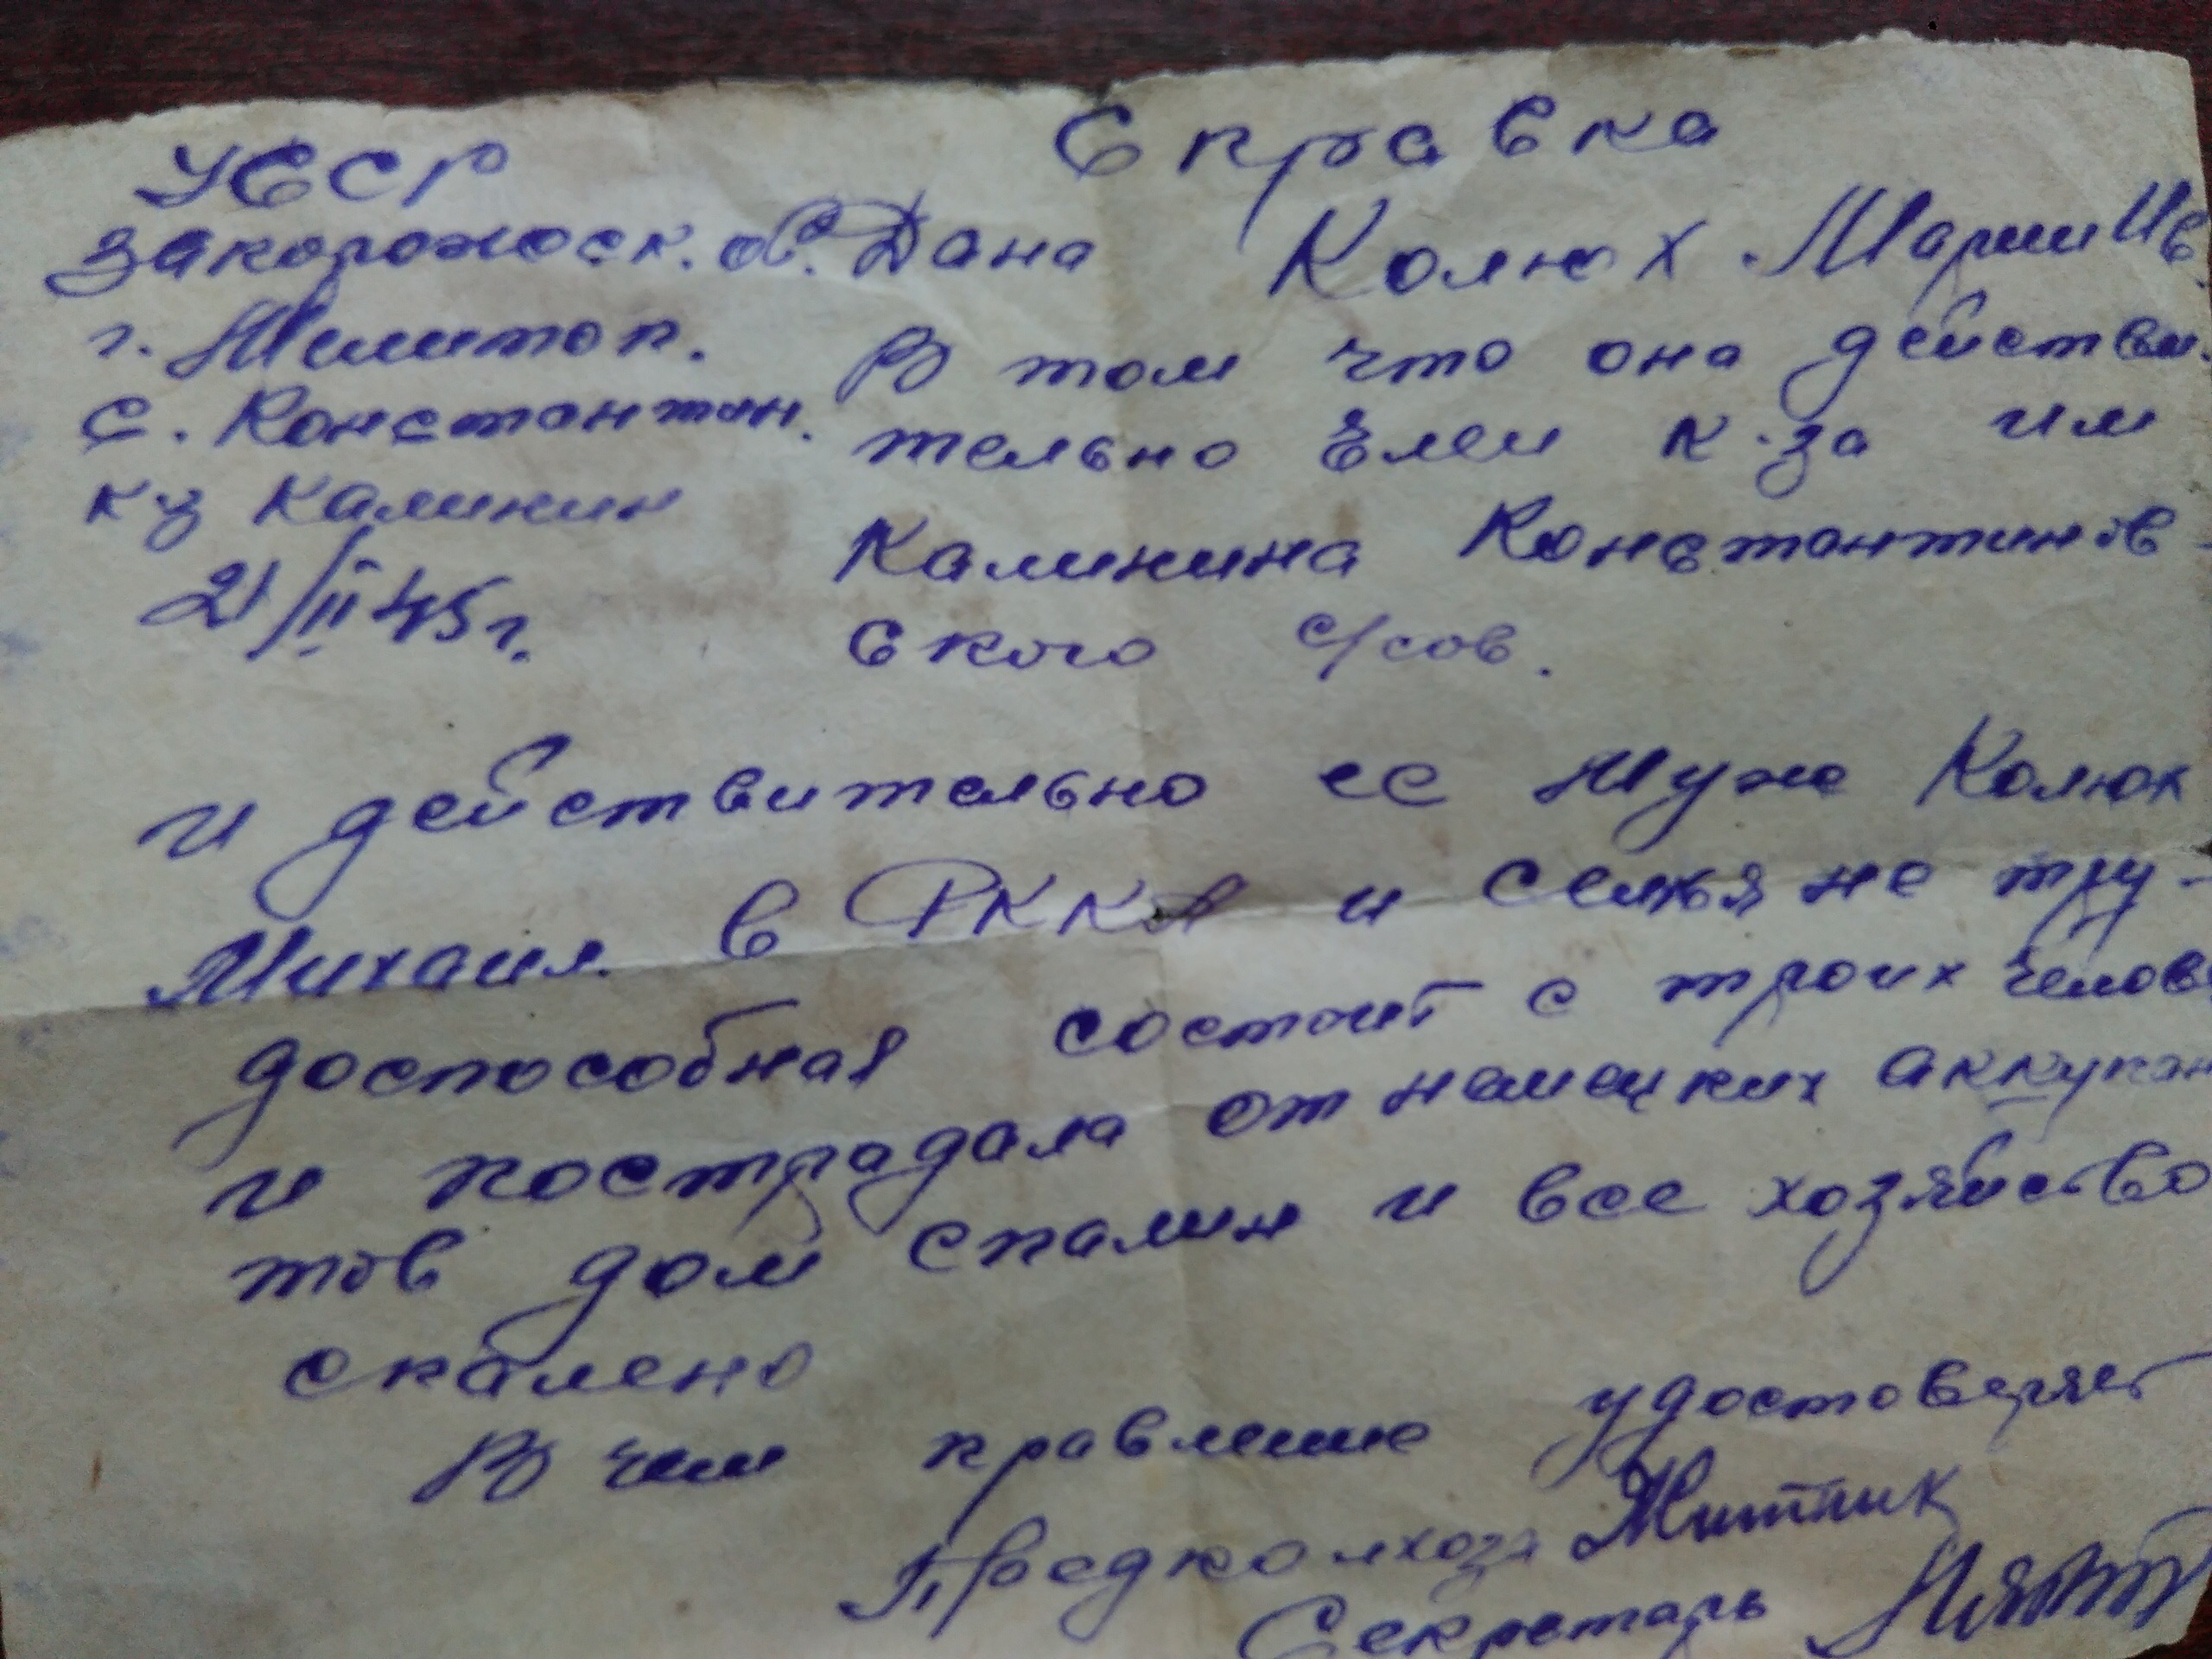 Справка
УССР
Запорожск. об. Дана Колюх Марии Ив.
г. Мелитоп. В том что она действи-
с. Константин. тельно член к-за им
кз Калинин Калинина Константинов-
21/II 45 г. ского с/сов.
и действительно ее муж Колюх
Михаил в РККА и семья не тру-
доспособная состоит с троих челове
и пострадала от немецких аккупан
тов дом спалин и все хозяйство
спалено
В чем правление удостоверяет
Предколхоза Митник
Секретарь